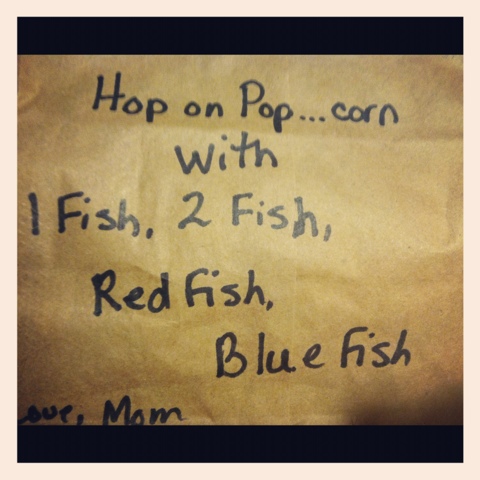 Hop on Pop...corn
with
1 Fish, 2 Fish,
Red Fish,
Blue Fish
ove, Mom